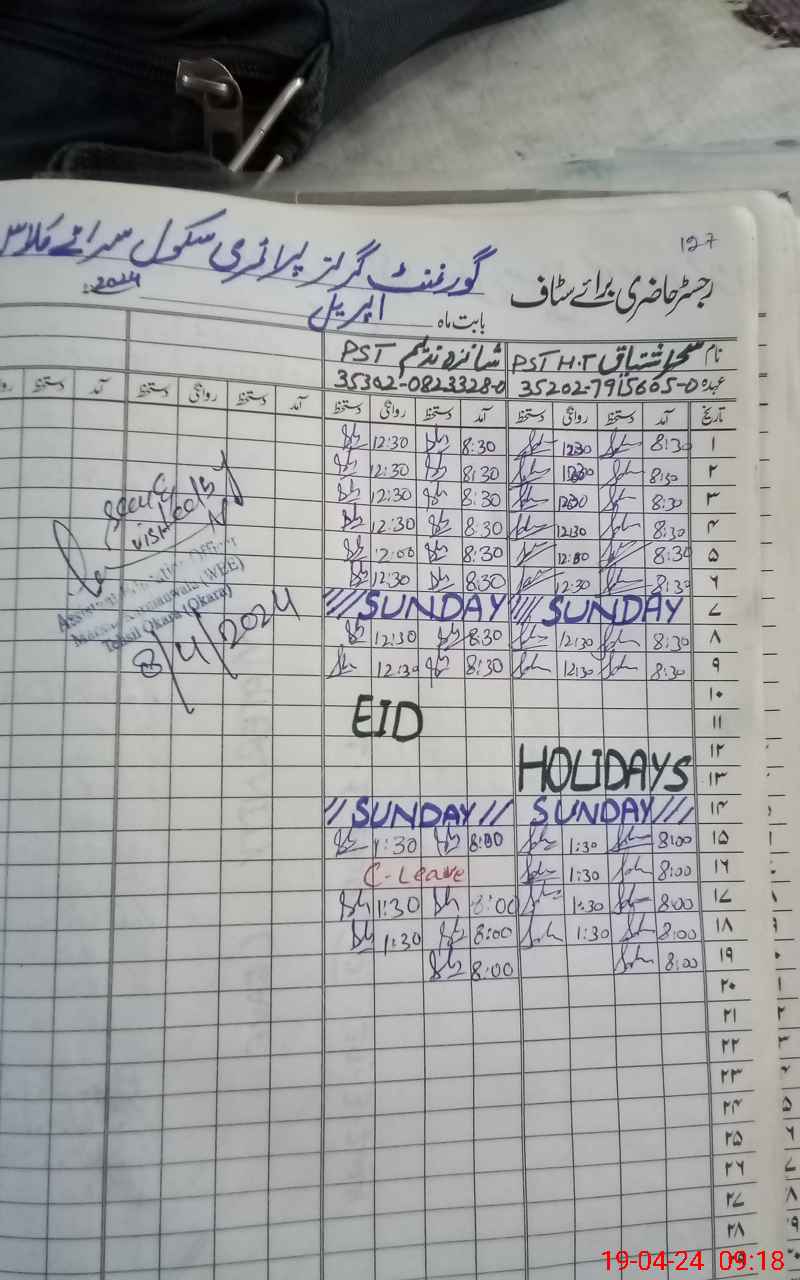 127
گورنمنٹ گرلز پرائمری سکول سرائے
رجسٹر حاضری برائے سٹاف
بابت ماہ اپریل 2024
نام سحر اشتیاق PST H.T شانزہ ندیم PST
عہدہ 35202-7915605-0 35302-0823328-0
تاریخ آمد دستخط روانگی دستخط آمد دستخط روانگی دستخط آمد دستخط روانگی دستخط آمد دستخط
۱ 8:30 12:30 8:30 12:30
۲ 8:30 12:30 8:30 12:30
۳ 8:30 12:30 8:30 12:30
۴ 8:30 12:30 8:30 12:30
۵ 8:30 12:00 8:30 12:00
۶ 8:30 12:30 8:30 12:30
۷ SUNDAY SUNDAY
۸ 8:30 12:30 8:30 12:30
۹ 8:30 12:30 8:30 12:30
۱۰
۱۱ EID
۱۲
۱۳ HOLIDAYS
۱۴ SUNDAY SUNDAY
۱۵ 8:00 1:30 8:00 1:30
۱۶ 8:00 1:30 C-Leave
۱۷ 8:00 1:30 8:00 1:30
۱۸ 8:00 1:30 8:00 1:30
۱۹ 8:00 8:00
۲۰
۲۱
۲۲
۲۳
۲۴
۲۵
۲۶
۲۷
۲۸
۲۹
visited
Assistant Education Officer
(WEE)
Tehsil Okara (Okara)
8/4/2024
19-04-24 09:18